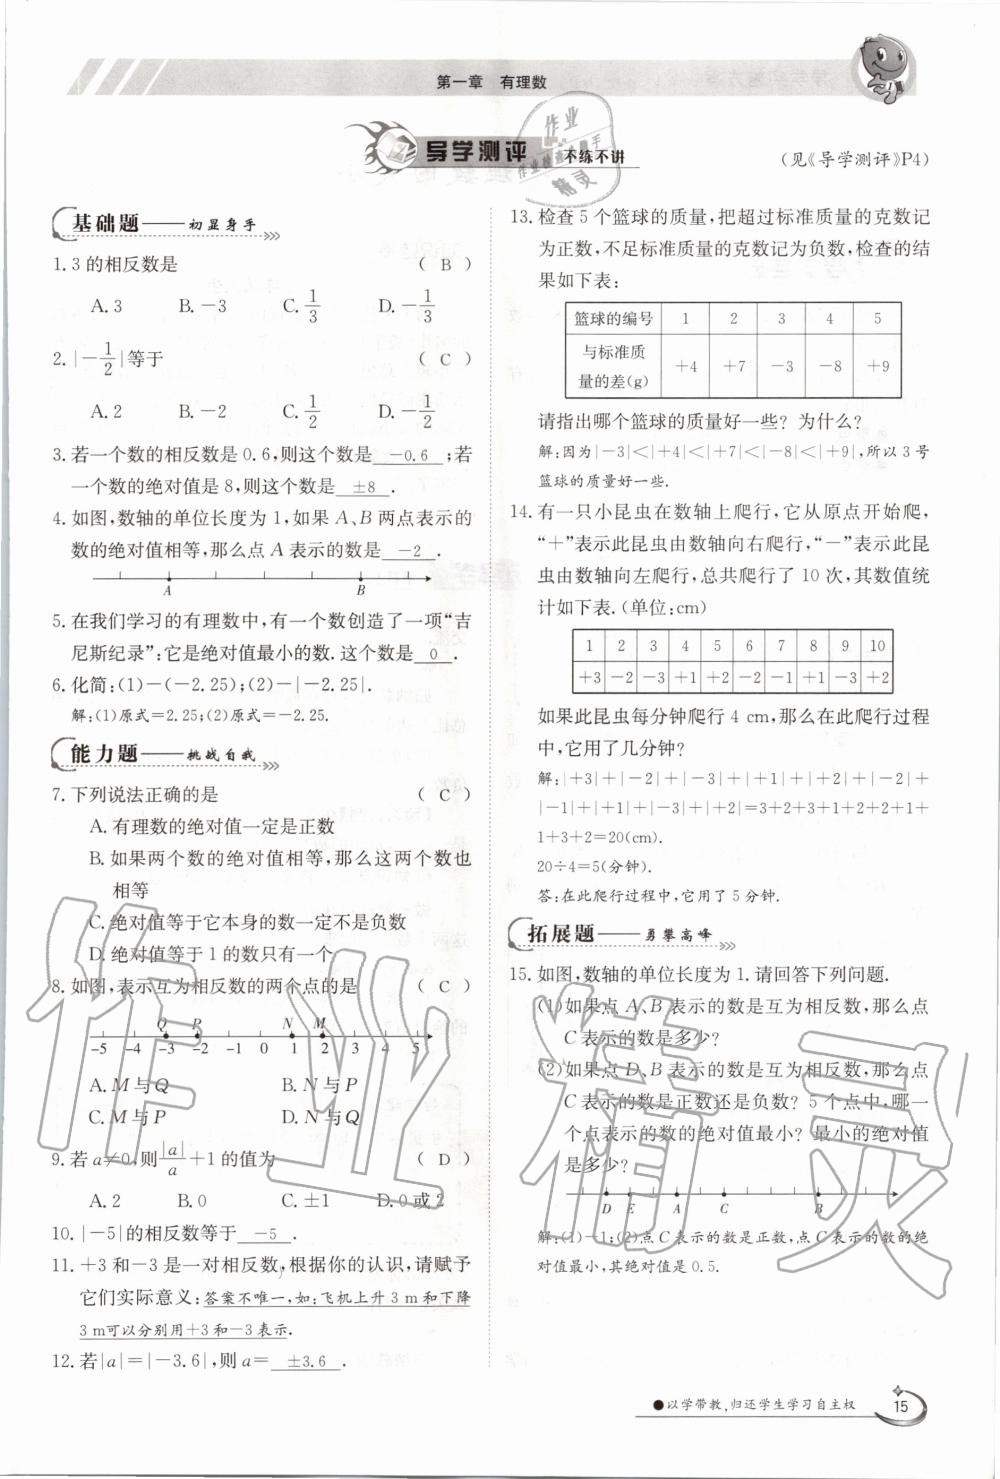 第一章 有理数
导学测评 不练不讲
(见《导学测评》P4)
基础题——初显身手
1.3的相反数是 ( B )
A.3 B.-3 C.1/3 D.-1/3
2.|-1/2|等于 ( C )
A.2 B.-2 C.1/2 D.-1/2
3.若一个数的相反数是0.6,则这个数是 -0.6 ;若
一个数的绝对值是8,则这个数是 ±8 .
4.如图,数轴的单位长度为1,如果A、B两点表示的
数的绝对值相等,那么点A表示的数是 -2 .
A B
5.在我们学习的有理数中,有一个数创造了一项“吉
尼斯纪录”:它是绝对值最小的数.这个数是 0 .
6.化简:(1)-(-2.25);(2)-|-2.25|.
解:(1)原式=2.25;(2)原式=-2.25.
能力题——挑战自我
7.下列说法正确的是 ( C )
A.有理数的绝对值一定是正数
B.如果两个数的绝对值相等,那么这两个数也
相等
C.绝对值等于它本身的数一定不是负数
D.绝对值等于1的数只有一个
8.如图,表示互为相反数的两个点的是 ( C )
Q P N M
-5 -4 -3 -2 -1 0 1 2 3 4 5
A.M与Q B.N与P
C.M与P D.N与Q
9.若a≠0,则|a|/a+1的值为 ( D )
A.2 B.0 C.±1 D.0或2
10.|-5|的相反数等于 -5 .
11.+3和-3是一对相反数,根据你的认识,请赋予
它们实际意义:答案不唯一,如:飞机上升3 m和下降
3 m可以分别用+3和-3表示.
12.若|a|=|-3.6|,则a= ±3.6 .
13.检查5个篮球的质量,把超过标准质量的克数记
为正数,不足标准质量的克数记为负数,检查的结
果如下表:
篮球的编号 1 2 3 4 5
与标准质
量的差(g) +4 +7 -3 -8 +9
请指出哪个篮球的质量好一些? 为什么?
解:因为|-3|<|+4|<|+7|<|-8|<|+9|,所以3号
篮球的质量好一些.
14.有一只小昆虫在数轴上爬行,它从原点开始爬,
“+”表示此昆虫由数轴向右爬行,“-”表示此昆
虫由数轴向左爬行,总共爬行了10次,其数值统
计如下表.(单位:cm)
1 2 3 4 5 6 7 8 9 10
+3 -2 -3 +1 +2 -2 -1 +1 -3 +2
如果此昆虫每分钟爬行4 cm,那么在此爬行过程
中,它用了几分钟?
解:|+3|+|-2|+|-3|+|+1|+|+2|+|-2|+
|-1|+|+1|+|-3|+|+2|=3+2+3+1+2+2+1+
1+3+2=20(cm).
20÷4=5(分钟).
答:在此爬行过程中,它用了5分钟.
拓展题——勇攀高峰
15.如图,数轴的单位长度为1.请回答下列问题.
(1)如果点A、B表示的数是互为相反数,那么点
C表示的数是多少?
(2)如果点D、B表示的数是互为相反数,那么点
C表示的数是正数还是负数? 5个点中,哪一
个点表示的数的绝对值最小? 最小的绝对值
是多少?
D E A C B
解:(1)-1;(2)点C表示的数是正数,点C表示的数的绝
对值最小,其绝对值是0.5.
●以学带教,归还学生学习自主权 15
作业精灵